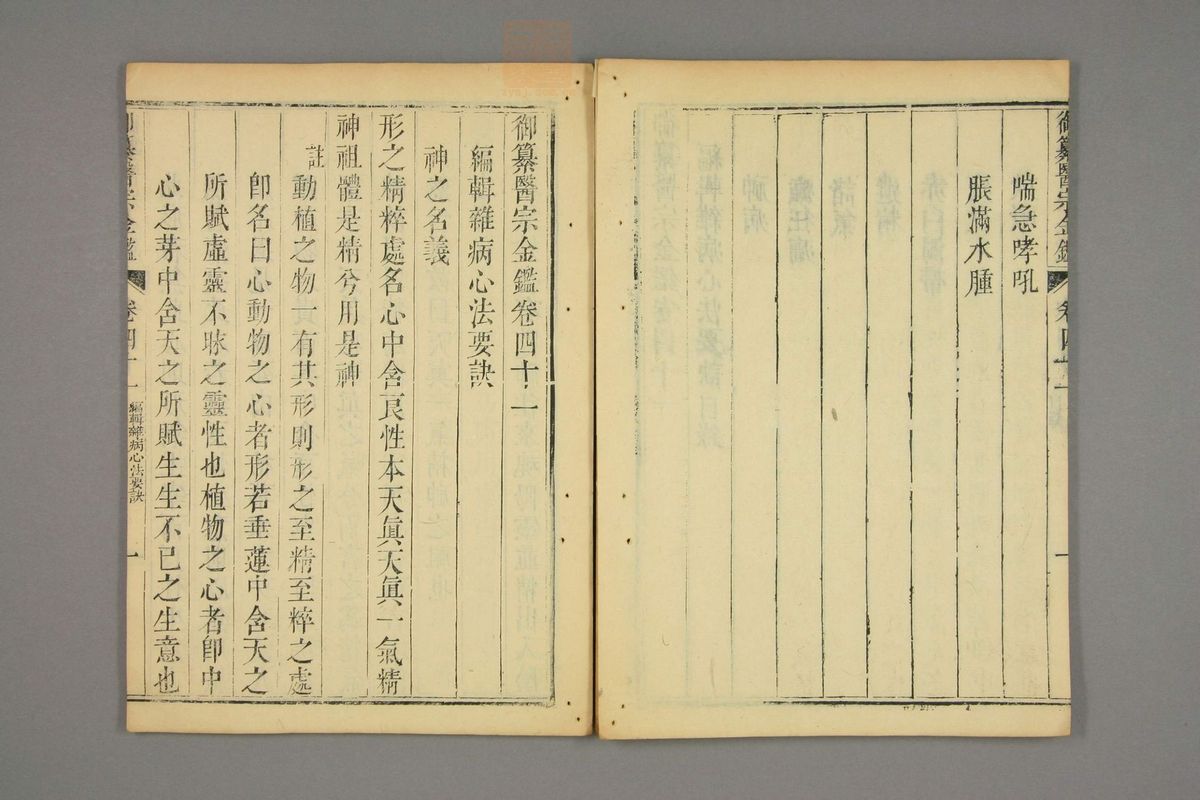 御纂醫宗金鑑
卷四十一
一
喘急哮吼
脹滿水腫
御纂醫宗金鑑卷四十一
編輯雜病心法要訣
神之名義
形之精粹處名心中含良性本天眞天眞一氣精
神祖體是精兮用是神
註動植之物一有其形則形之至精至粹之處
卽名曰心動物之心者形若垂蓮中含天之
所賦虛靈不昧之靈性也植物之心者卽中
心之芽中含天之所賦生生不已之生意也
御纂醫宗金鑑
卷四十一
編輯雜病心法要訣
一